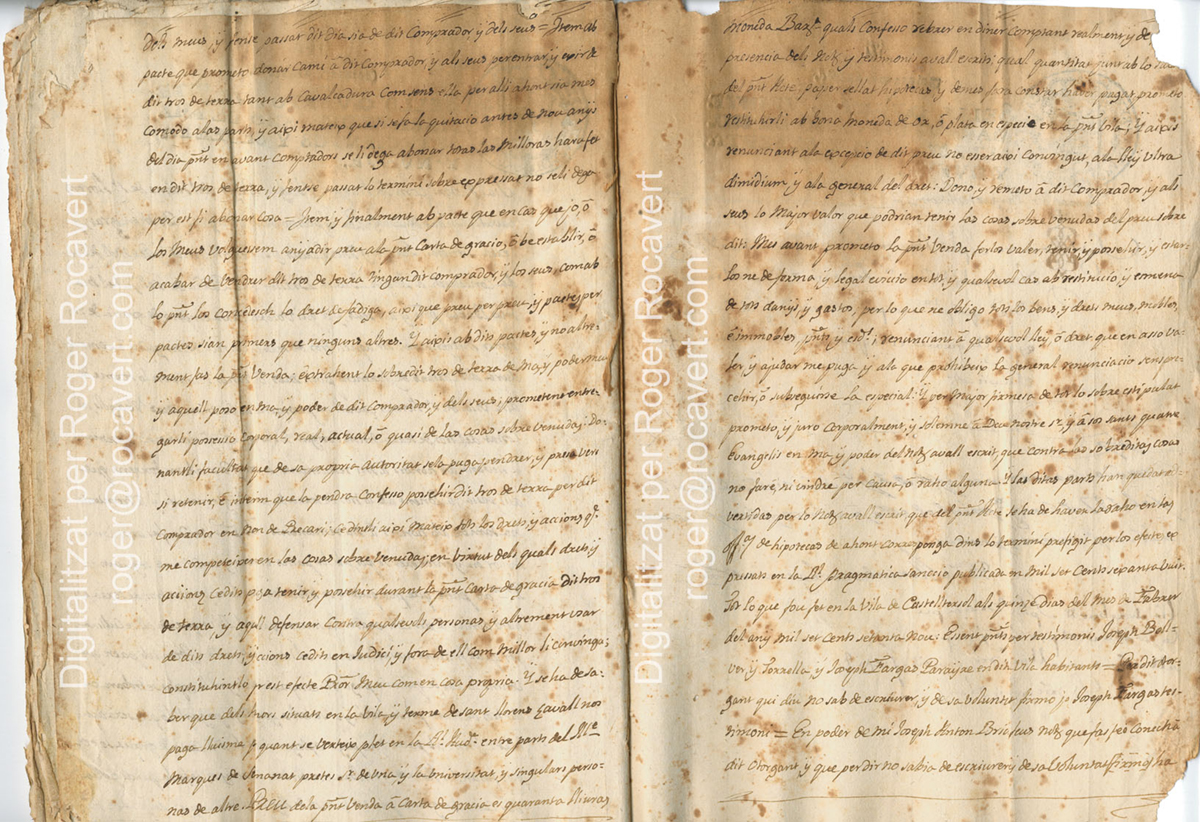 dels meus, ÿ jense passar dit dia sia de dit Comprador ÿ dels seus = Item ab
pacte que prometo donar Cami â dit Comprador ÿ als seus per entrar, ÿ exir de
dit tros de terra tant ab Cavalcadura Com sens ella per alli ahont sia mes
comodo a las parts, ÿ aixi mateix que si se fa la quitacio antes de nou anÿs
del dia pñt en avant Comptadors se li dega abonar totas las Milloras haura fet
en dit tros de terra, ÿ jentse passat lo termini sobre expressat no se li dega
per est fi abonar cosa = Item ÿ finalment ab pacte que en cas que jo, ô
los Meus volguessem anÿadir preu a la pñt Carta de gracia, ô be establir, ô
acabar de vendrer dit tros de terra tingan dit comprador, ÿ los seus, com ab
lo pñt los concedesch lo dret de fadiga, aixi que preu per preu, ÿ pactes per
pactes sian primers que ninguns altres. Y aixis ab dits pactes, ÿ no altre-
ment fas la pñt Venda; extrahent lo sobredit tros de terra de Ma, ÿ poder meu
ÿ aquell poso en ma, ÿ poder de dit Comprador, ÿ dels seus; prometent entre-
garli possessio Corporal, real, actual, ô quasi de las cosas sobre venudas; Do-
nantli facultat que de sa propria autoritat se la puga pendrer, ÿ pres ver
si retenir, ê interim que la pendra Confesso possehir dit tros de terra per dit
Comprador en Nom de Precari; Cedintli aixi mateix tots los drets, ÿ accions qe.
me competeixen en las cosas sobre venudas; en virtut dels quals drets, ÿ
accions Cedits puga tenir, ÿ possehir durant la pñt Carta de gracia dit tros
de terra ÿ aqll defensar Contra qualsevols personas ÿ altrement usar
de dits drets, ÿ accions cedits en Judici, ÿ fora de ell com millor li convinga;
Constituhintlo per est efecte Pror. Meu com en Cosa propria. Y se ha de sa-
ber que dels Mors situats en la Vila, ÿ terme de Sant Llorens Cavall nos
paga lluisme p quant se verteix plet en la Rl. Aud.a entre parts del Ill.e
Marques de Senanat pretes Sr. de dita ÿ la Universitat, ÿ singulars perso-
nas de altre. Preu de la pñt Venda â Carta de Gracia es quaranta lliuras
moneda Bar.a quals Confesso rebrer en diner Comptant realment, ÿ de
presencia dels Not, y testimonis avall escrits; qual quantitat junt ab lo
del pñt Acte, paper sellat hipotecas ÿ demes fara constar haver pagat prometo
restituhirli ab bona Moneda de or, ô plata en especie en la pñt Vila; Y aixis
renunciant a la excepcio de dit preu no esser aixi Convingut, a la lleÿ ultra
dimidium, ÿ a la general del dret: Dono, ÿ remeto â dit Comprador, ÿ als
seus lo Major valor que podrian tenir las cosas sobre venudas del preu sobre
dit: Mes avant prometo la pñt Venda ferlos valer, tenir, ÿ possehir, ÿ estar-
los ne de ferma, ÿ legal eviccio en tot, ÿ qualsevol cas ab restitucio ÿ esmena
de tots danÿs, ÿ gastos, per lo que ne obligo tots los bens, ÿ drets meus, mobles,
ê immobles, pñts, y esd.rs; renunciant â qualsevol lleÿ, ô dret que en asso va-
ler, ÿ ajudar me puga, ÿ a la que prohibeix la general renunciacio sens pre-
cehir, ô subseguirse la especial. Y per Major firmesa de tot lo sobre estipulat
prometo, ÿ juro Corporalment, ÿ solemne â Deu nostre sr., ÿ â sos sants quatre
Evangelis en ma, ÿ poder del Not avall escrit, que contra las sobreditas cosas
no fare, ni vindre per causa, ô rahó alguna. Y las ditas parts han quedat ad-
vertidas per lo Not avall escrit, que del pñt Acte se ha de haver la raho en los
off.s de hipotecas de ahont corresponga dins lo termini prefigit per los efectes ex
pressats en la Rl. Pragmatica Sancio publicada en Mil set Cents sexanta vuit.
Tot lo que fou fet en la Vila de Castelltersol als quinse dias del Mes de Fabrer
del anÿ Mil set Cents setanta Nou: Essent pñts per testimonis Joseph Boll-
ver, ÿ Torrella, y Joseph Fargas Paraÿre en dita Vila habitants = Per dit Otor-
gant qui diu no sab de escriurer, ÿ de sa voluntat firmo jo Joseph Fargas tes-
timoni = En poder de mi Joseph Anton Brichsus Not que fas fee Conech â
dit Otorgant, y que per dir no sabia de escriurer ÿ de sa Voluntat firmó ha
Digitalitzat per Roger Rocavert
roger@rocavert.com
Digitalitzat per Roger Rocavert
roger@rocavert.com